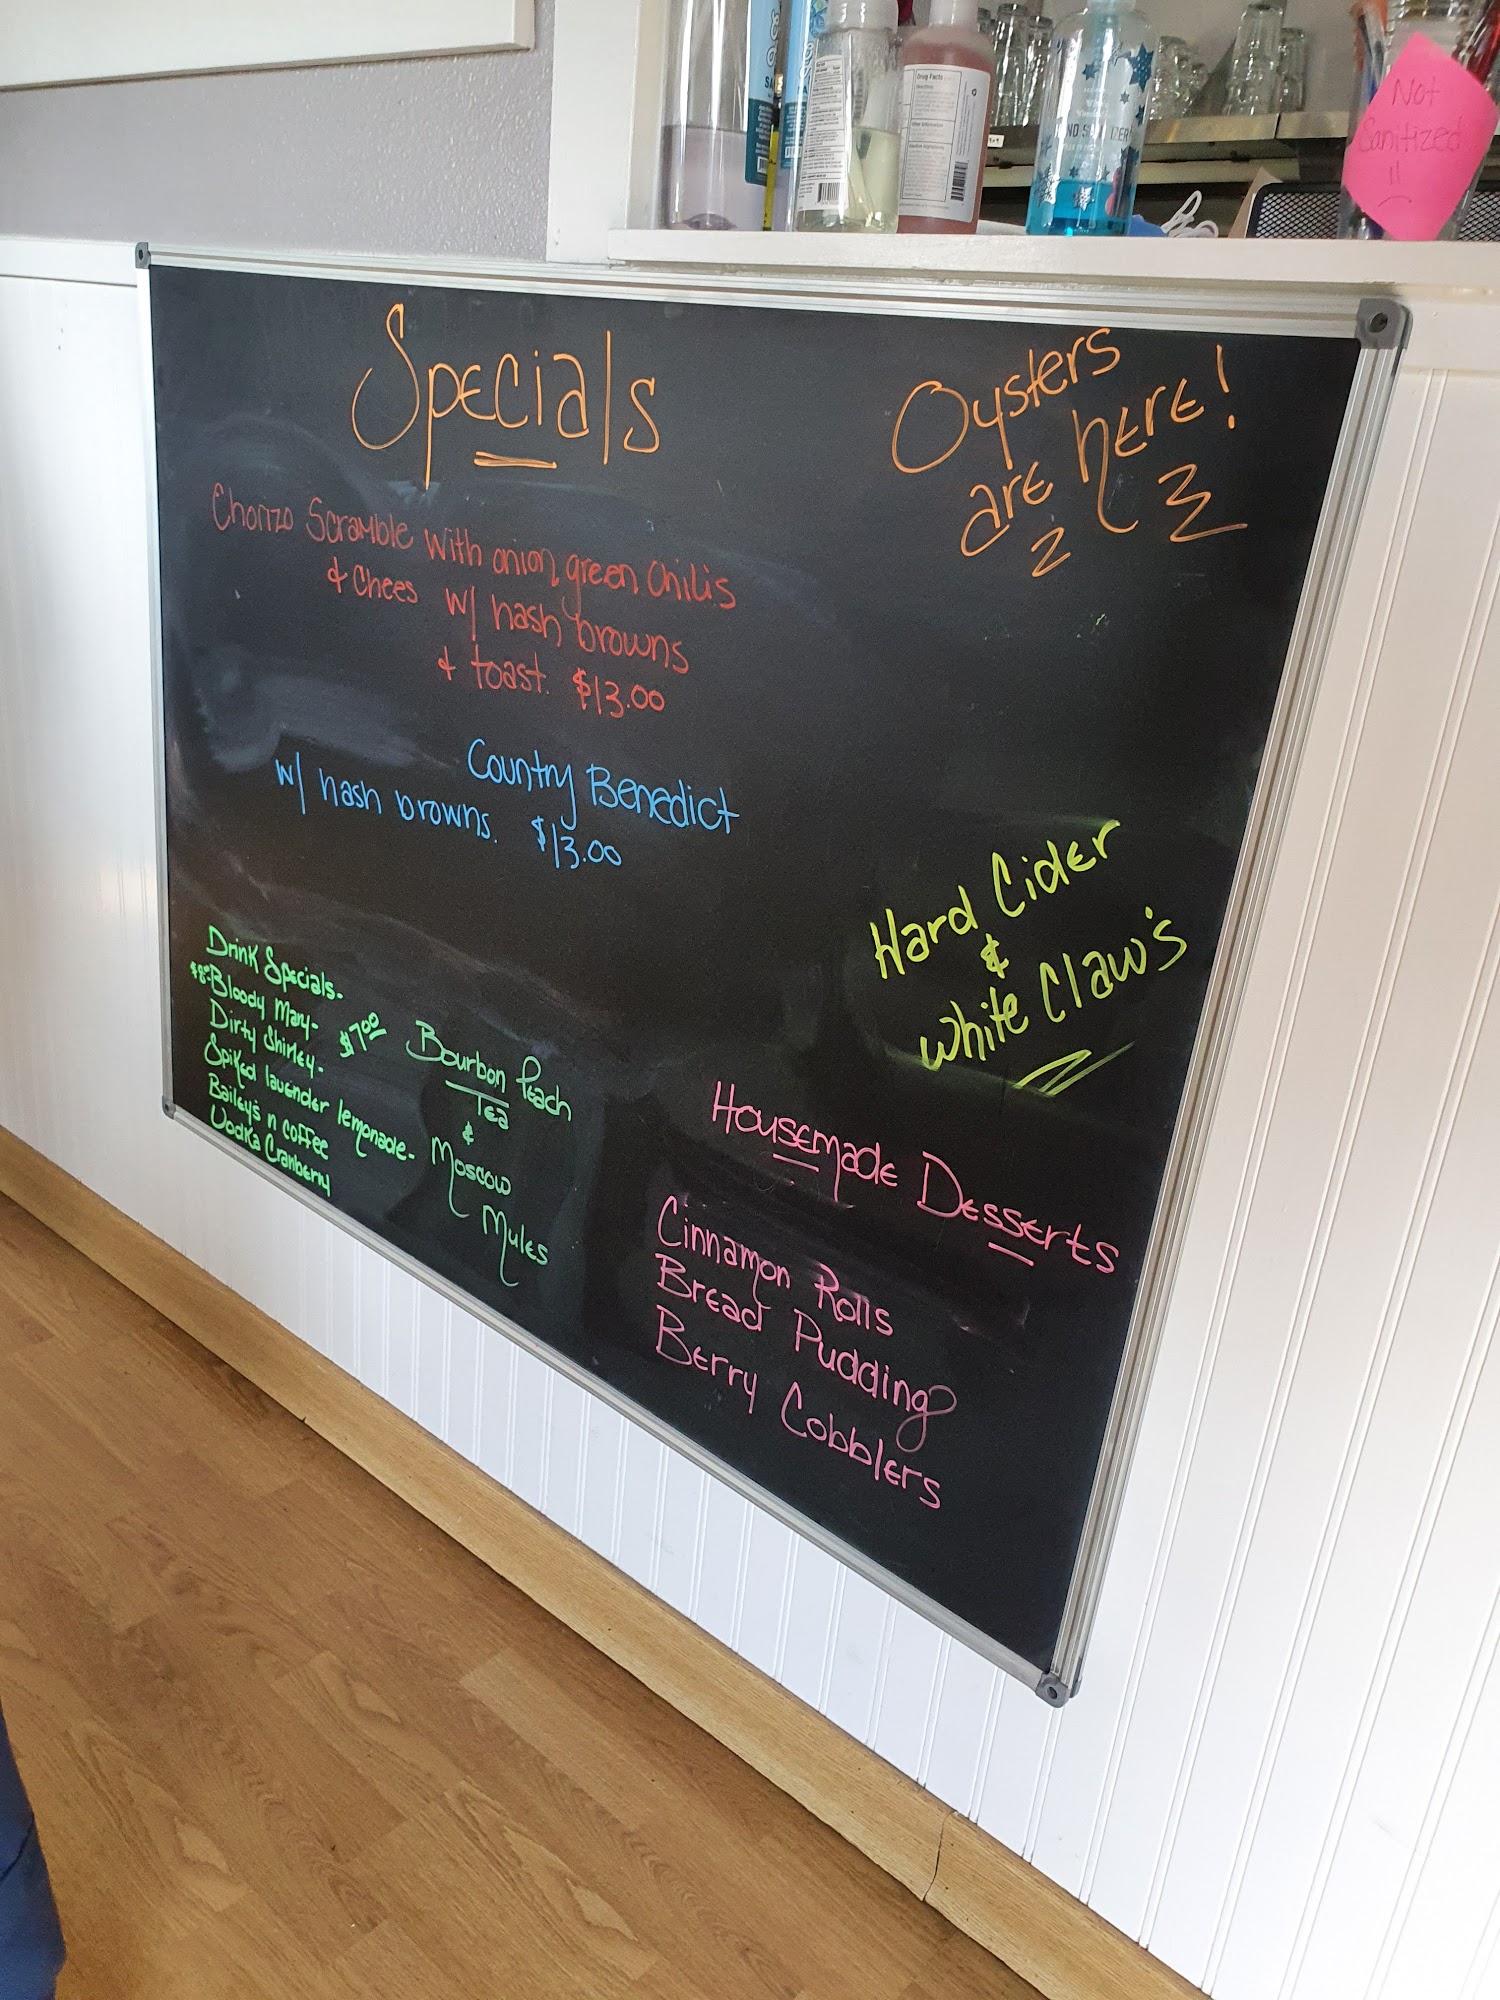 Not
Sanitized
Drug Facts
Specials
Oysters
are here!
Chorizo Scramble with onion, green chilis
& Chees w/ hash browns
& toast. $13.00
Country Benedict
w/ hash browns. $13.00
Hard Cider
&
White Claw's
Drink Specials-
$8⁰⁰ Bloody Mary-
Dirty Shirley- $7⁰⁰
Spiked lavender lemonade-
Bailey's n coffee
Vodka Cranberry
Bourbon Peach
Tea
&
Moscow
Mules
Housemade Desserts
Cinnamon Rolls
Bread Pudding
Berry Cobblers